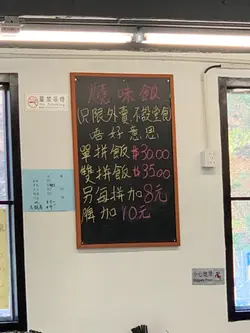 嚴禁吸煙
No Smoking
燒味飯
只限外賣不設堂食
唔好意思
單拼飯$30.00
雙拼飯$35.00
另每拼加8元
髀加10元
小心地滑
Slippery Floor